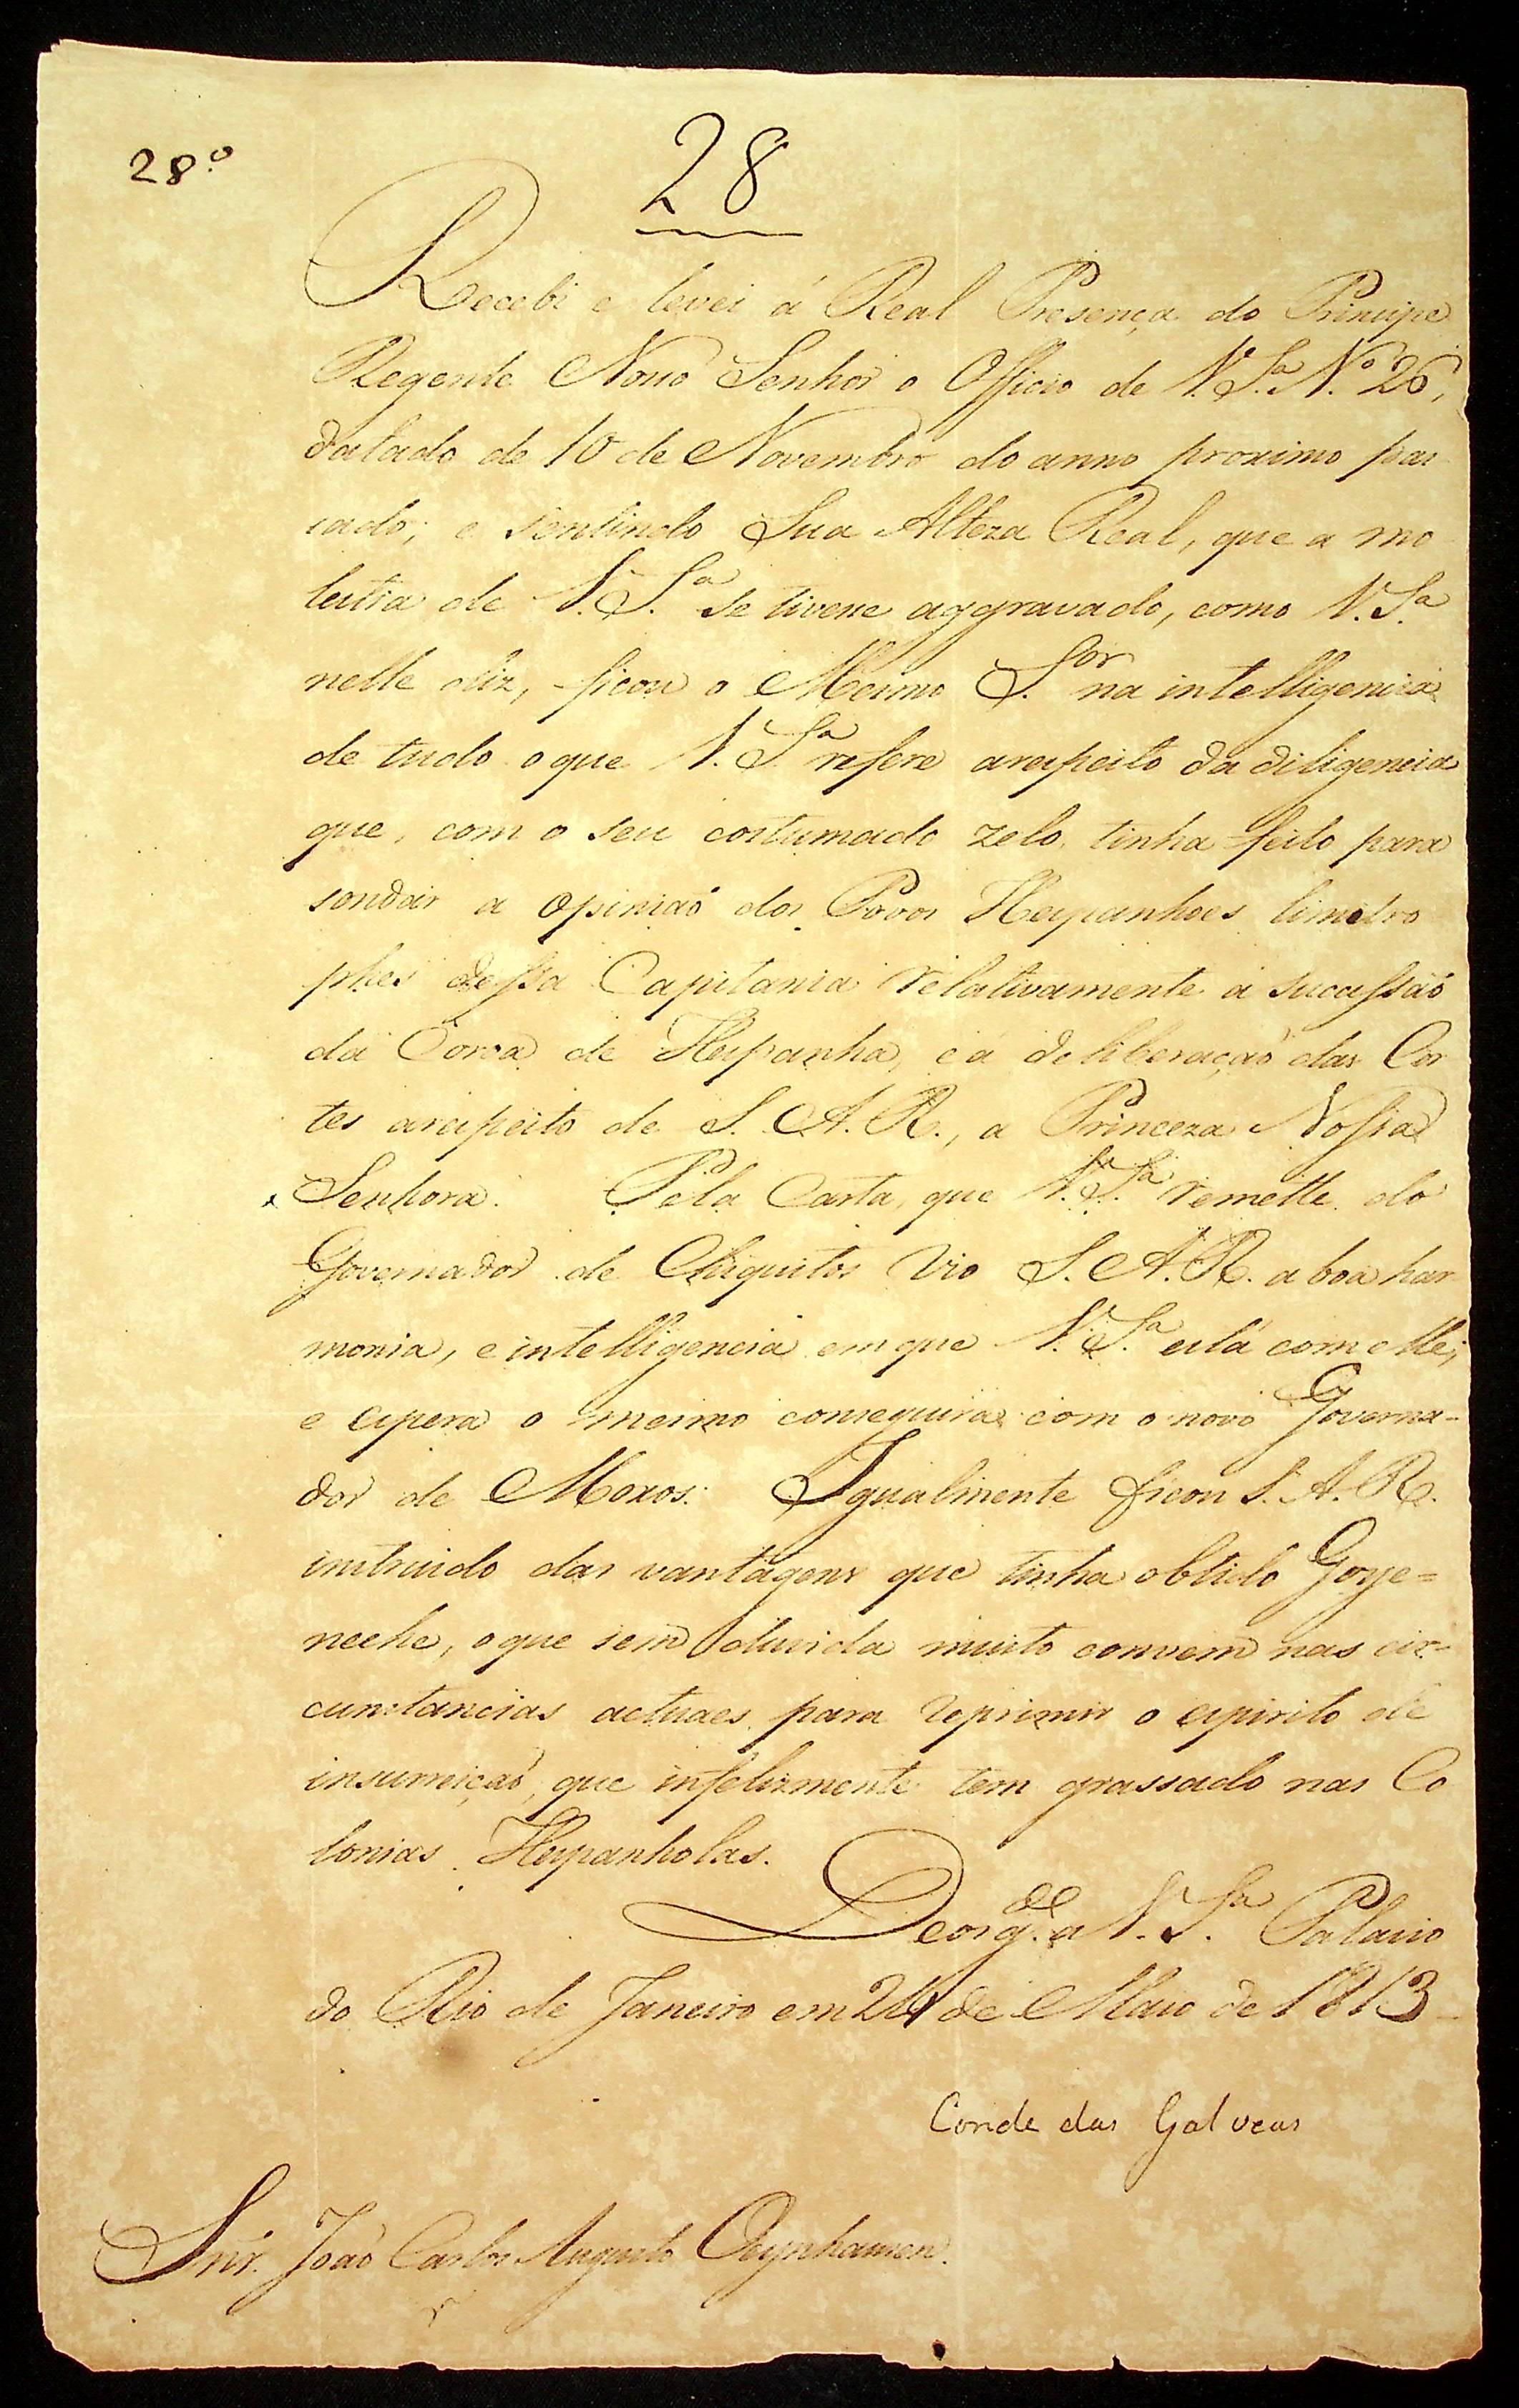 28.º
28
Recebi e levei á Real Presença do Principe
Regente Nosso Senhor o Officio de V. S.ª N.º 26,
datado de 10 de Novembro do anno proximo pas
sado; e sentindo Sua Alteza Real, que a mo
lestia de V. S.ª se tivesse aggravado, como V. S.ª
nelle diz, ficou o Mesmo S.or na intelligencia
de tudo o que V. S.ª refere arespeito da diligencia
que, com o seu costumado zelo, tinha feito para
sondar a opiniaõ dos Povos Hespanhoes limitro
phes dessa Capitania relativamente á successaõ
da Coroa de Hespanha, e á deliberaçaõ das Cor
tes arespeito de S. A. R., a Princeza Nossa
Senhora. Pela Carta, que V. S.ª remette do
Governador de Chiquitos vio S. A. R. a boa har
monia, e intelligencia em que V. S.ª está com elle;
e espera o mesmo conseguirá com o novo Governa-
dor de Moxos. Igualmente ficou S. A. R.
instruido das vantagens que tinha obtido Goye=
neche, o que sem duvida muito convem nas cir-
cunstancias actuaes para reprimir o espirito de
insurreiçaõ, que infelizmente tem grassado nas Co
lonias Hespanholas.
Deos g.de a V. S.ª Palacio
do Rio de Janeiro em 24 de Maio de 1813
Conde das Galveas
Snr. Joaõ Carlos Augusto Oeynhausen.